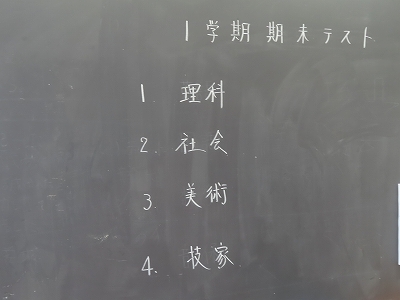 1学期期末テスト
1. 理科
2. 社会
3. 美術
4. 技家